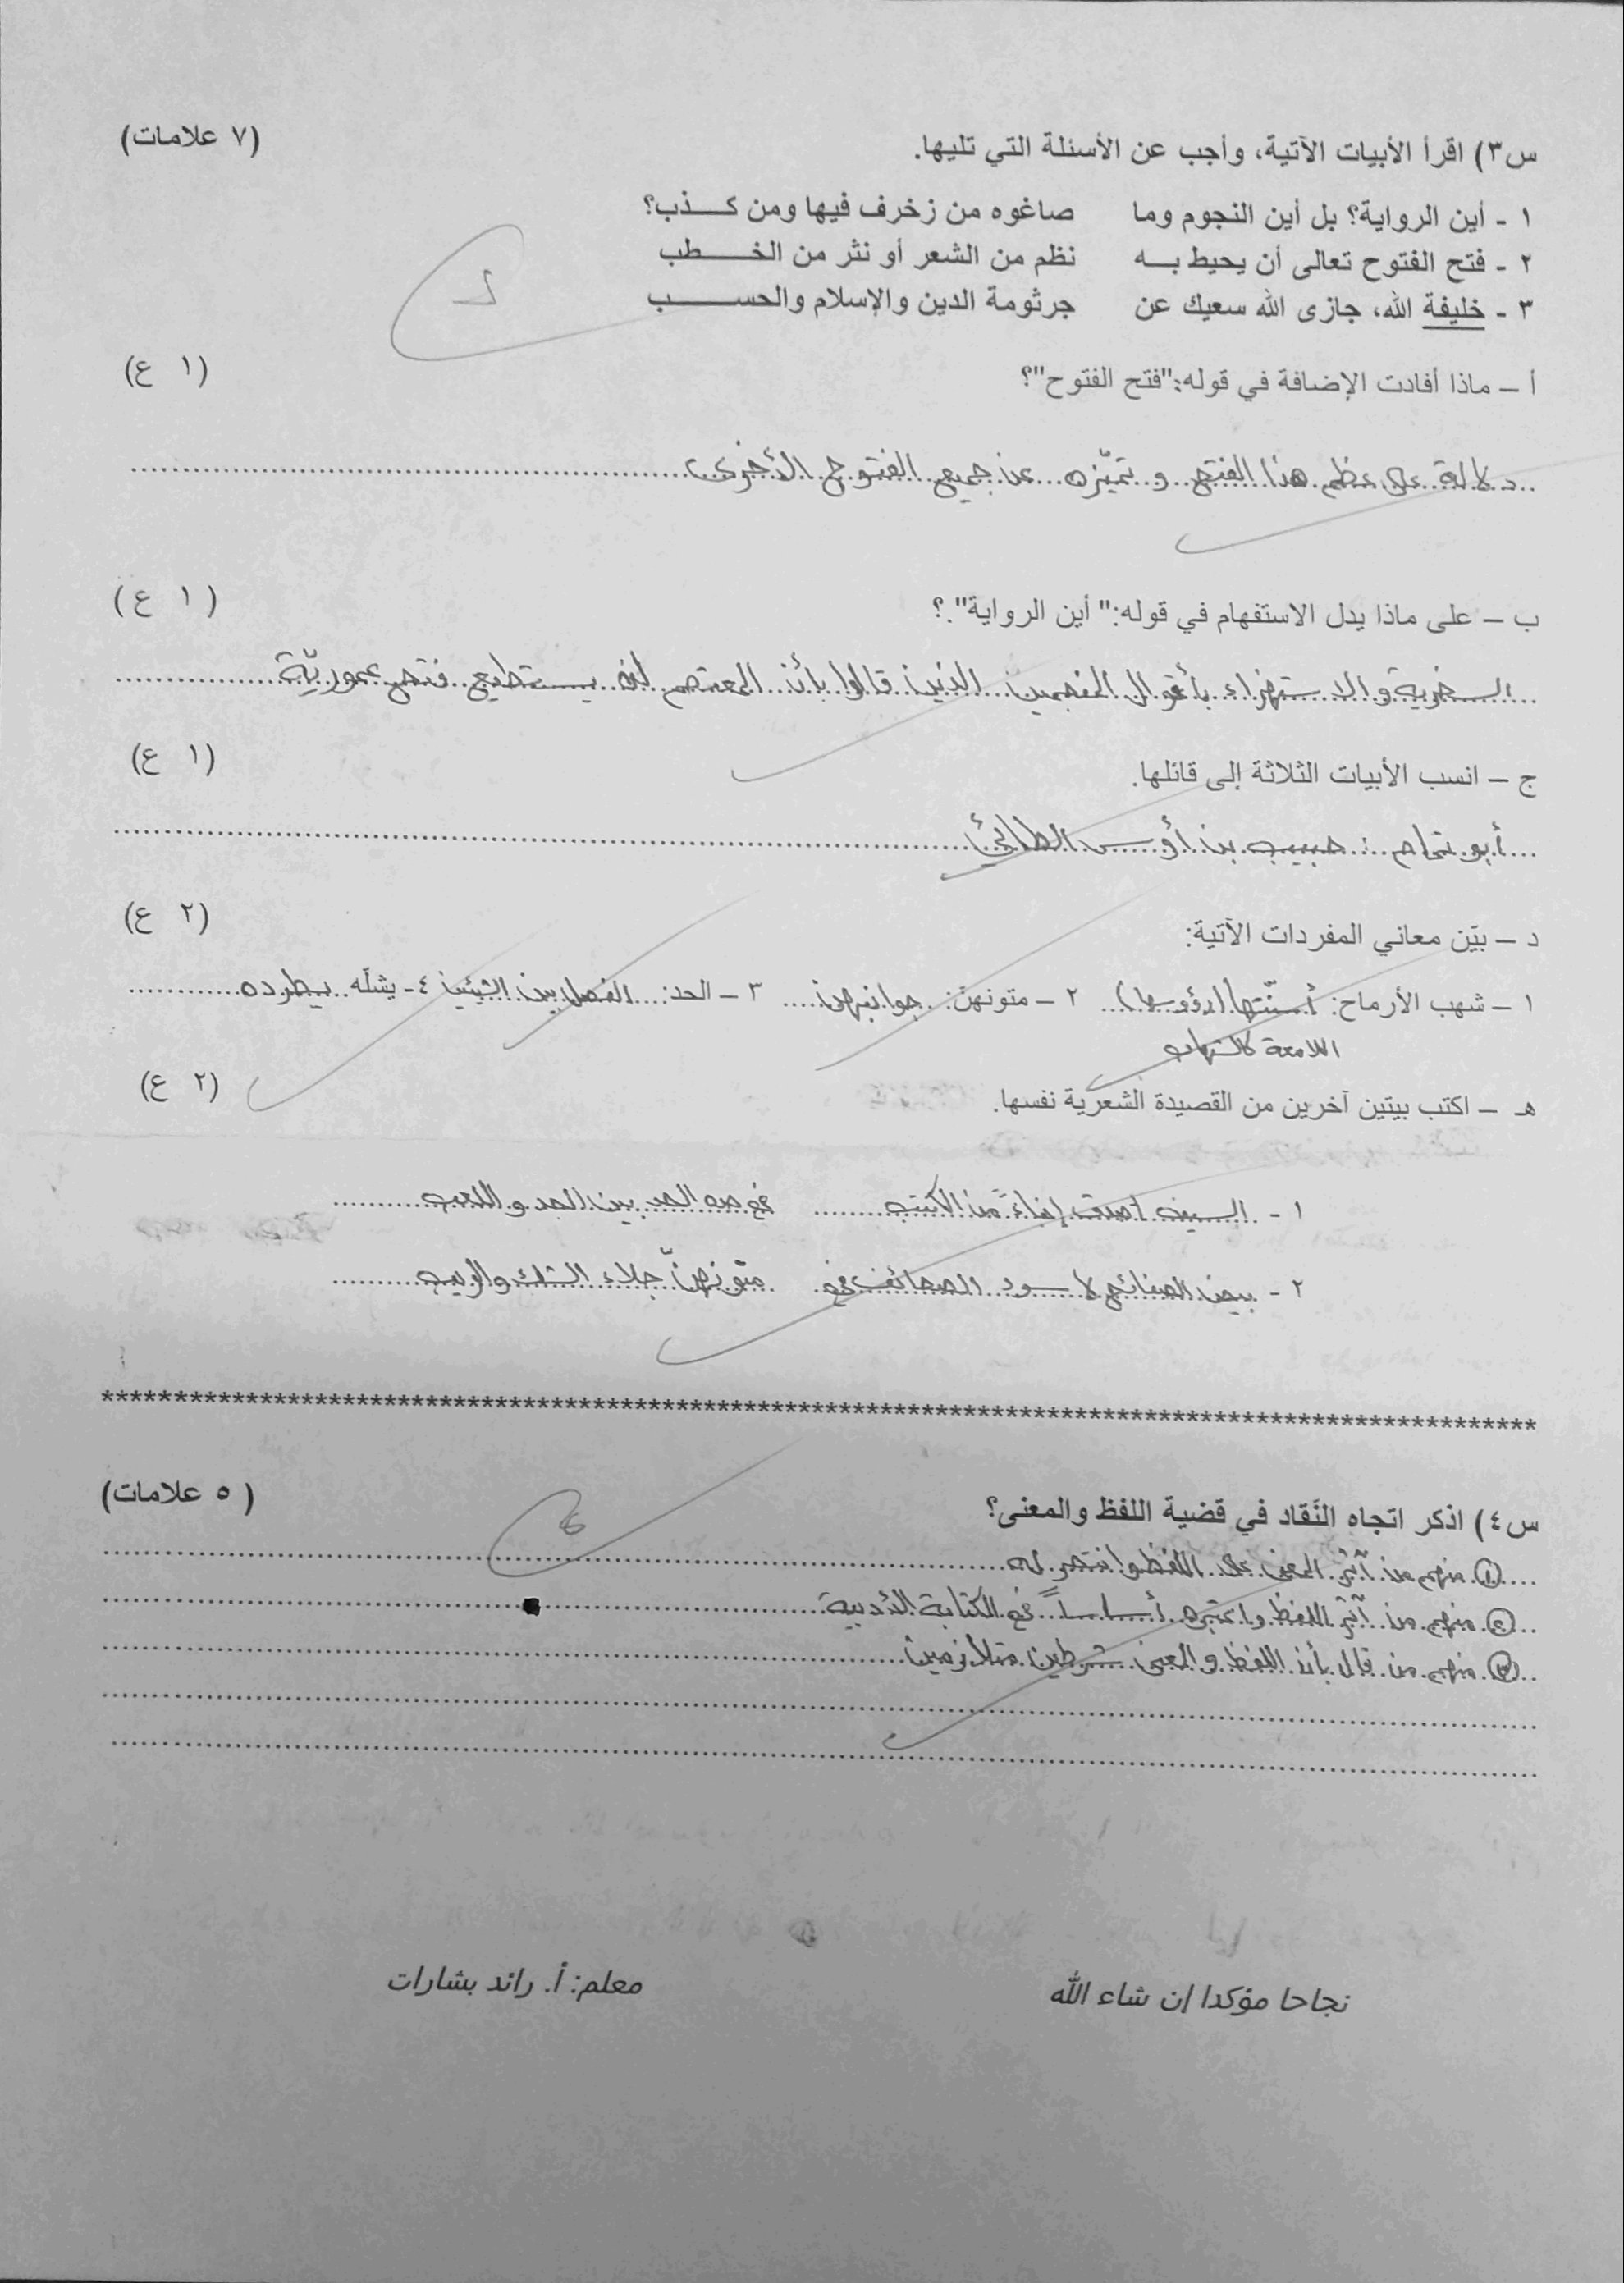 س٣) اقرأ الأبيات الآتية، وأجب عن الأسئلة التي تليها. (٧ علامات)
١ - أين الرواية؟ بل أين النجوم وما صاغوه من زخرف فيها ومن كـــذب؟
٢ - فتح الفتوح تعالى أن يحيط بـــه نظم من الشعر أو نثر من الخـــــطب
٣ - خليفة الله، جازى الله سعيك عن جرثومة الدين والإسلام والحســـــب
أ – ماذا أفادت الإضافة في قوله:"فتح الفتوح"؟ (١ ع)
دلالة على عظم هذا الفتح و تميّزه عن جميع الفتوح الأخرى
ب – على ماذا يدل الاستفهام في قوله:" أين الرواية".؟ (١ ع)
السخرية والاستهزاء بأقوال المنجمين الذين قالوا بأن المعتصم لن يستطيع فتح عموريّة
ج – انسب الأبيات الثلاثة إلى قائلها. (١ ع)
أبو تمام : حبيب بن أوس الطائي
د – بيّن معاني المفردات الآتية: (٢ ع)
١ – شهب الأرماح: أسنّتها (رؤوسها) ٢ – متونهنّ: جوانبهن ٣ – الحد: الفصل بين الشيئين ٤- يشلّه يطرده
اللامعة كالشهاب
هـ – اكتب بيتين آخرين من القصيدة الشعرية نفسها. (٢ ع)
١ - السيف أصدق إنباءً من الكتب في حده الحد بين الجد واللعب
٢ - بيض الصفائح لا سود الصحائف في متونهنّ جلاء الشك والريب
س٤) اذكر اتجاه النّقاد في قضية اللفظ والمعنى؟ (٥ علامات)
١ منهم من آثر المعنى على اللفظ وانتصر له
٢ منهم من آثر اللفظ واعتبره أساساً في الكتابة الأدبية
٣ منهم من قال بأن اللفظ والمعنى شرطين متلازمين
نجاحا مؤكدا إن شاء الله معلم: أ. رائد بشارات